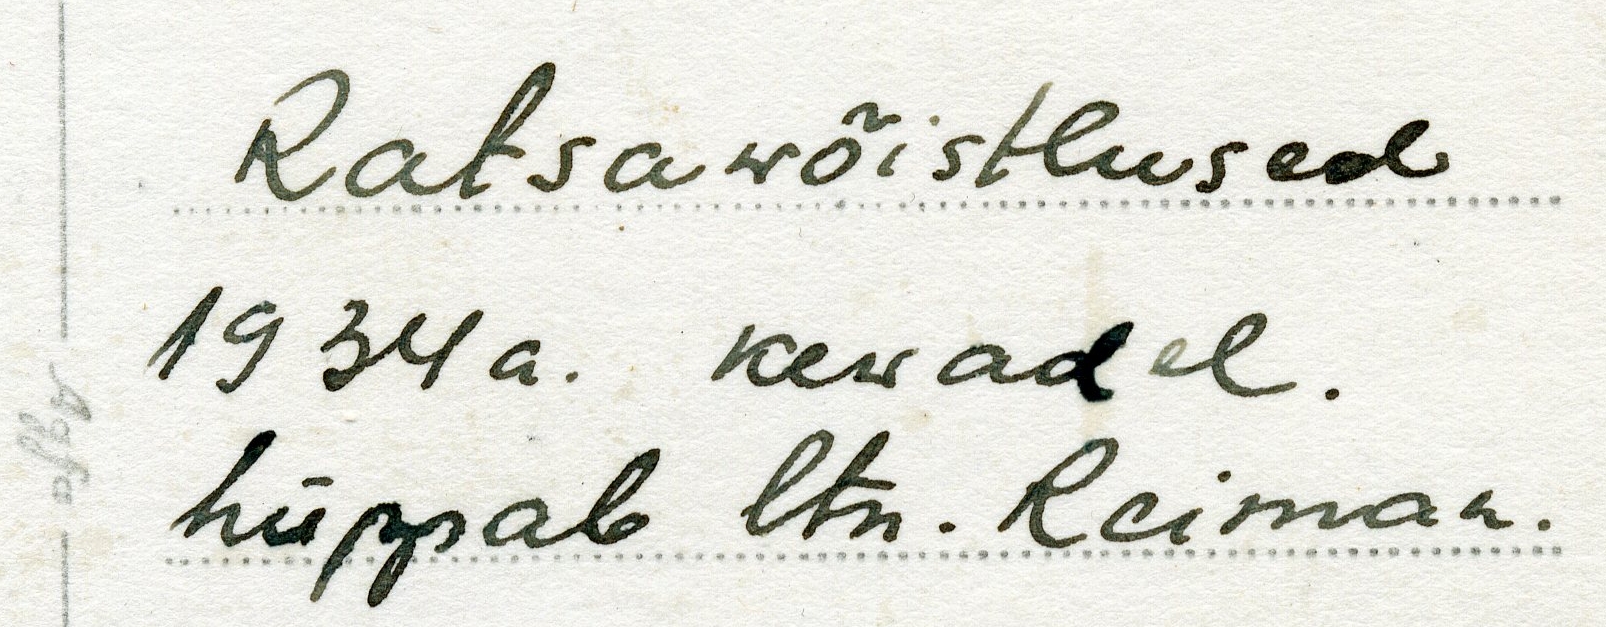 Ratsawõistlused
1934a. kewadel.
hüppab ltn. Reiman.
Agfa